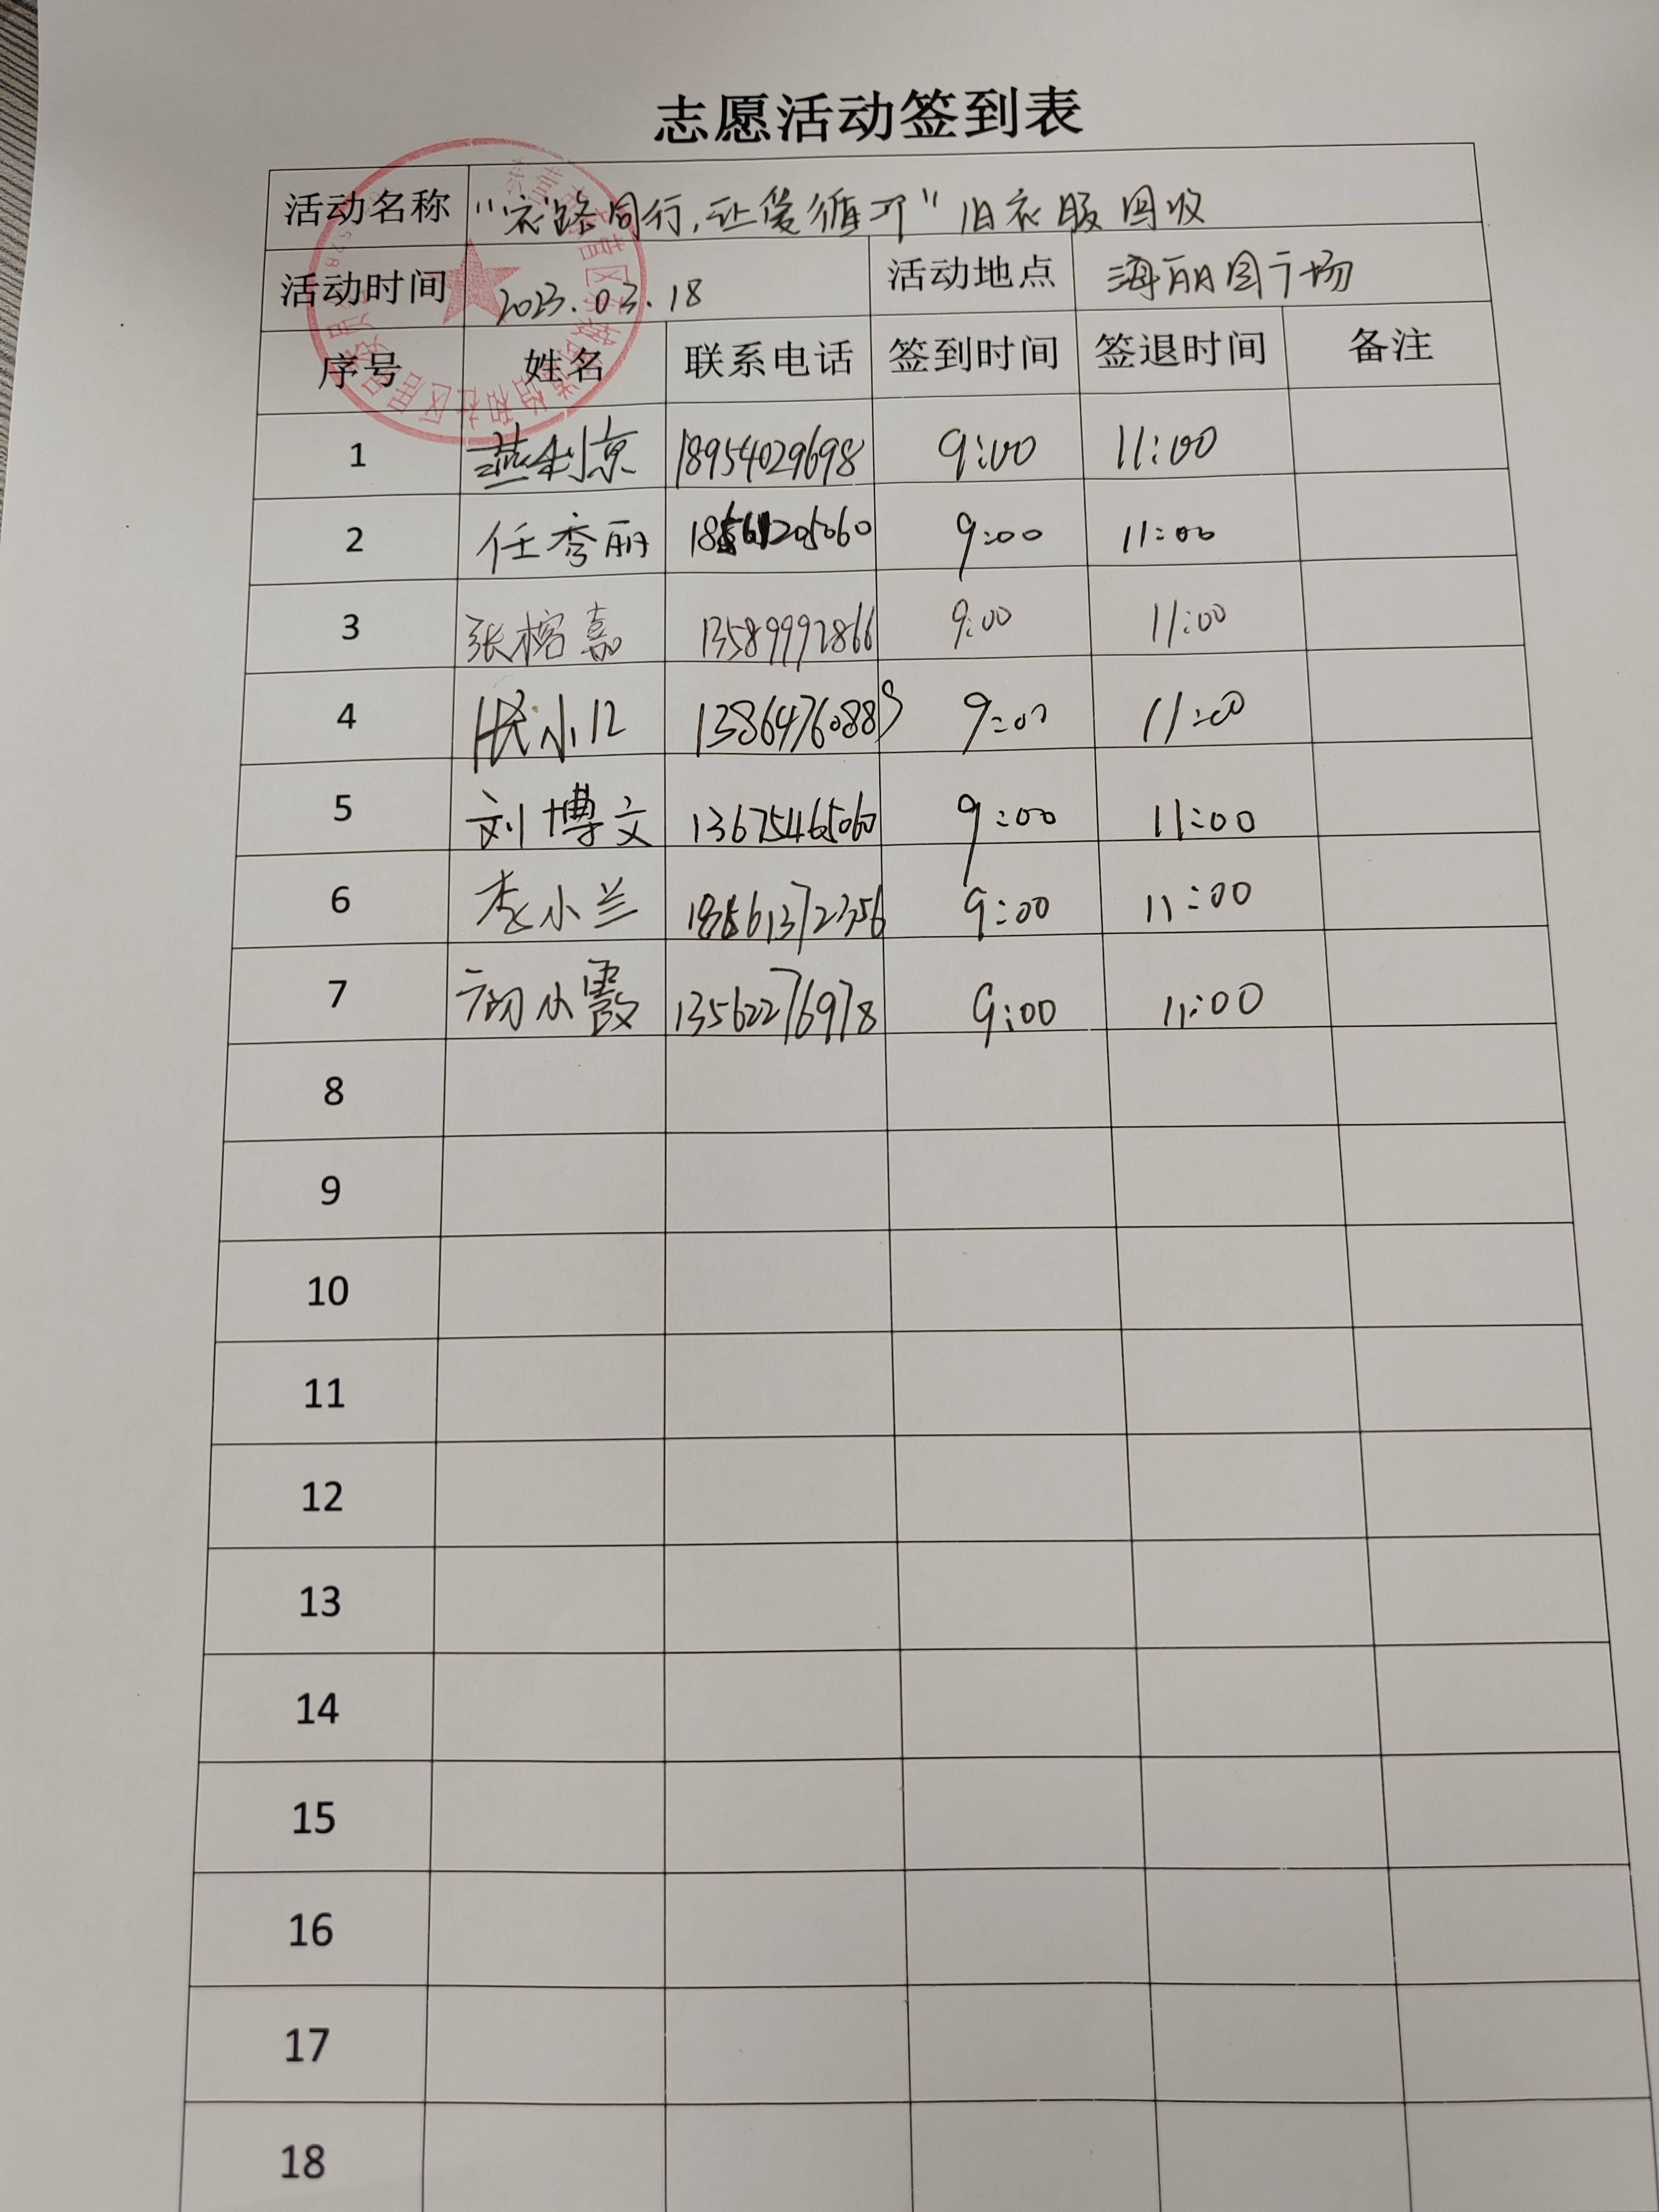 志愿活动签到表
活动名称 “衣”路同行,让爱循环”旧衣服回收
活动时间 2023.03.18 活动地点 海丽图广场
序号 姓名 联系电话 签到时间 签退时间 备注
1 燕利京 18954029698 9:00 11:00
2 任秀丽 18561205060 9:00 11:00
3 张榕嘉 13589992866 9:00 11:00
4 小 13864760889 9:00 11:00
5 刘博文 13675465060 9:00 11:00
6 李小兰 18561372356 9:00 11:00
7 初小霞 13562276978 9:00 11:00
8
9
10
11
12
13
14
15
16
17
18